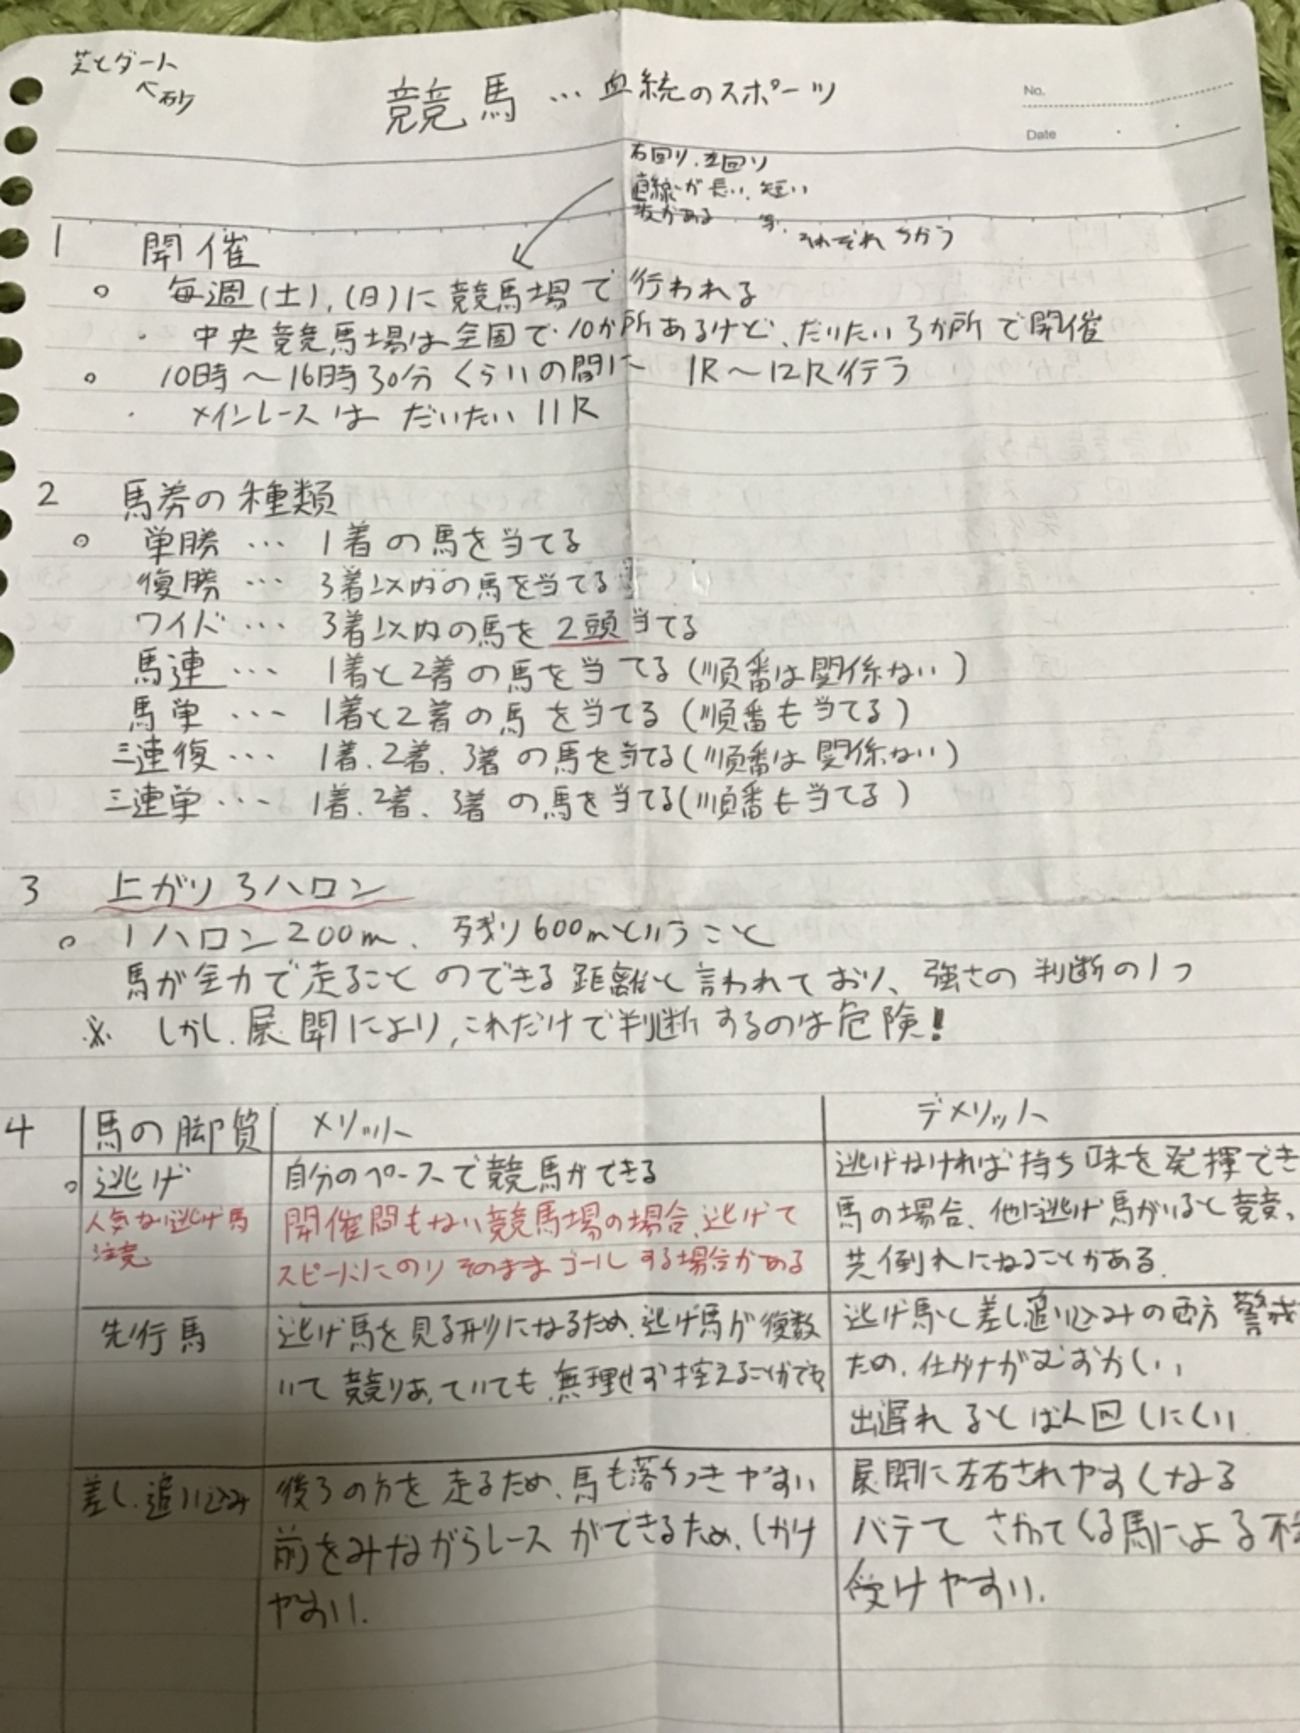 芝とダート
砂
競馬…血統のスポーツ
No.
Date
右回り、左回り
直線が長い、短い
坂がある 等、それぞれちがう
1 開催
○ 毎週(土),(日)に競馬場で行われる
・中央競馬場は全国で10か所あるけど、だいたい3か所で開催
○ 10時〜16時30分くらいの間に 1R〜12R行う
・メインレースは だいたい11R
2 馬券の種類
○ 単勝… 1着の馬を当てる
復勝… 3着以内の馬を当てる
ワイド… 3着以内の馬を2頭当てる
馬連… 1着と2着の馬を当てる(順番は関係ない)
馬単… 1着と2着の馬を当てる(順番も当てる)
三連復… 1着、2着、3着の馬を当てる(順番は関係ない)
三連単… 1着、2着、3着の馬を当てる(順番も当てる)
3 上がり3ハロン
○ 1ハロン200m、残り600mということ
馬が全力で走ることのできる距離と言われており、強さの判断の1つ
※ しかし、展開により、これだけで判断するのは危険!
4 馬の脚質 メリット デメリット
○ 逃げ
人気ない逃げ馬
注意
自分のペースで競馬ができる
開催間もない競馬場の場合、逃げて
スピードにのりそのままゴールする場合がある
逃げなければ持ち味を発揮でき
馬の場合、他に逃げ馬がいると競
共倒れになることがある。
先行馬
逃げ馬を見る形になるため、逃げ馬が復数
いて競りあっていても、無理せず控えることができ
逃げ馬と差し追い込みの両方警戒
ため、仕かけがむずかしい
出遅れるとばん回しにくい
差し、追い込み
後ろの方を走るため、馬も落ちつきやすい
前をみながらレースができるため、しかけ
やすい。
展開に左右されやすくなる
バテてさがってくる馬による不
受けやすい。